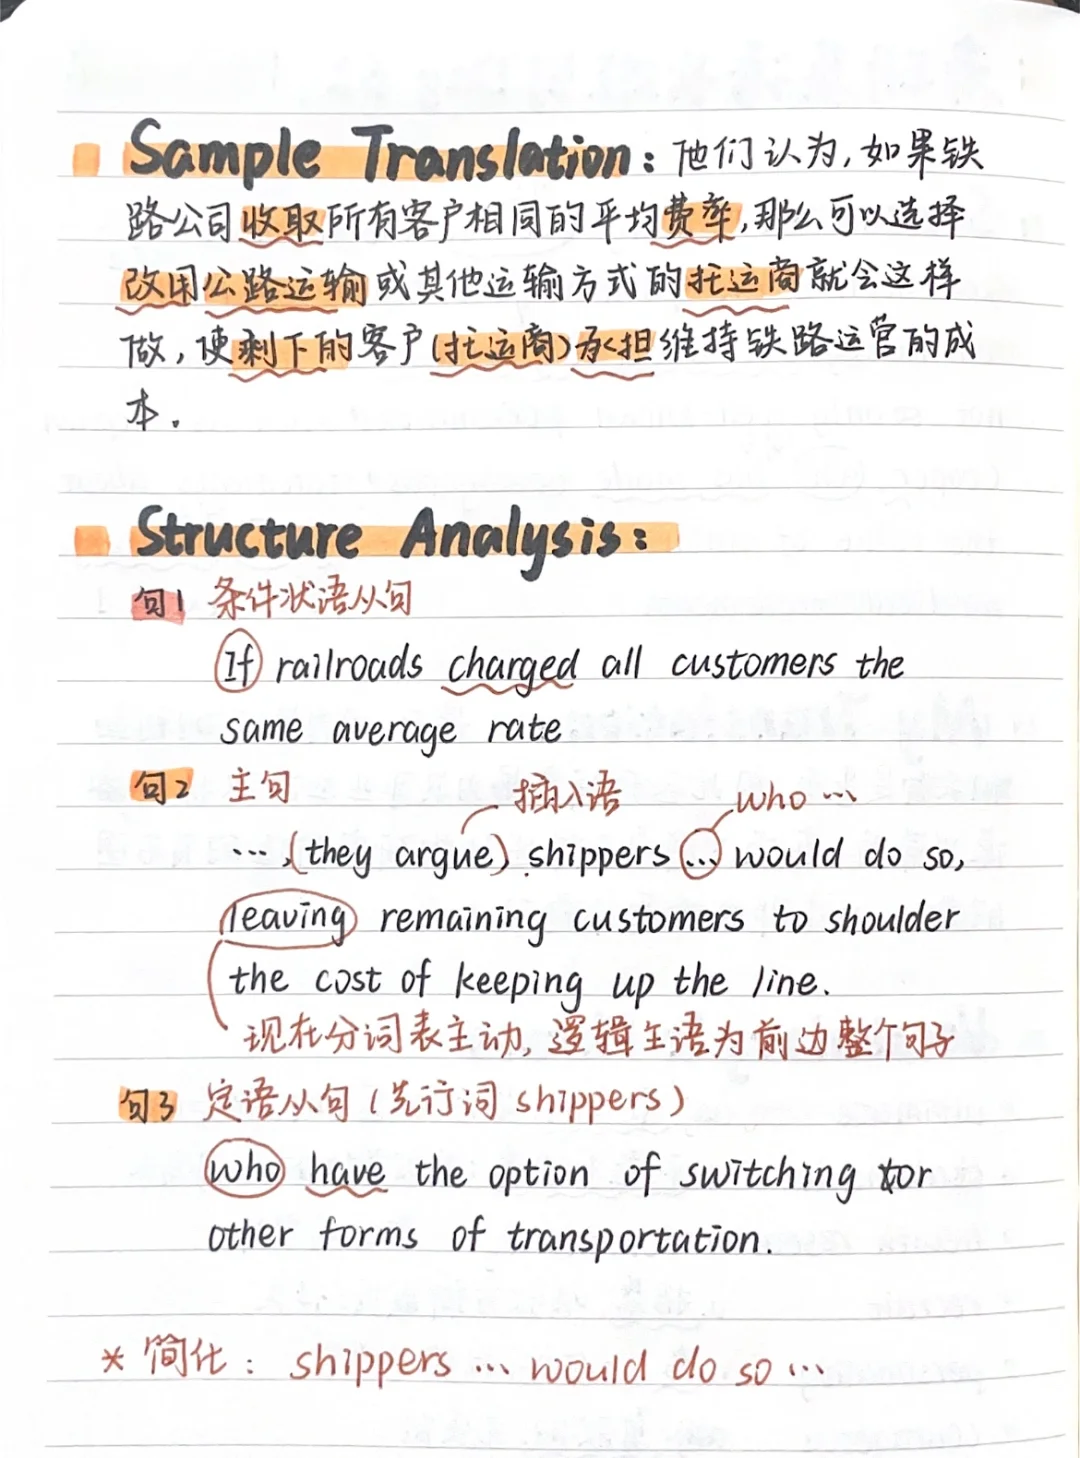 Sample Translation: 他们认为,如果铁
路公司收取所有客户相同的平均费率,那么可以选择
改用公路运输或其他运输方式的托运商就会这样
做,使剩下的客户(托运商)承担维持铁路运营的成
本。
Structure Analysis:
句1 条件状语从句
If railroads charged all customers the
same average rate
句2 主句 插入语 who …
…, (they argue), shippers … would do so,
leaving remaining customers to shoulder
the cost of keeping up the line.
现在分词表主动,逻辑主语为前边整个句子
句3 定语从句(先行词 shippers)
who have the option of switching or
other forms of transportation.
* 简化: shippers … would do so …